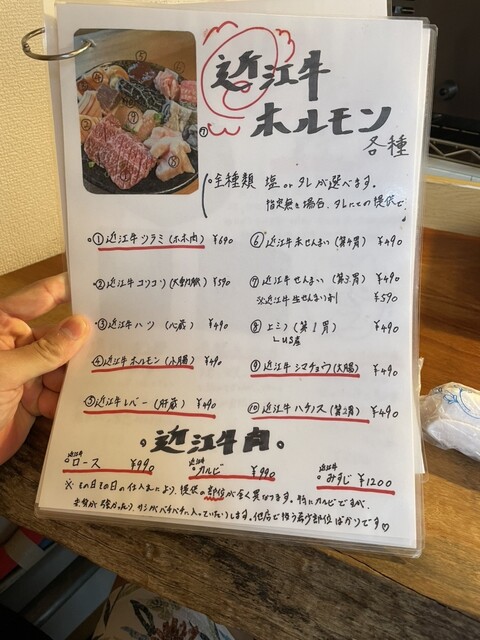 近江牛
ホルモン
各種
全種類 塩orタレが選べます。
指定無き場合、タレにての提供で
①近江牛ツラミ(ホホ肉) ¥690
②近江牛コリコリ(大動脈) ¥590
③近江牛ハツ(心臓) ¥490
④近江牛ホルモン(小腸) ¥490
⑤近江牛レバー(肝臓) ¥490
⑥近江牛赤せんまい(第4胃) ¥490
⑦近江牛せんまい(第3胃) ¥490
近江牛生せんまい刺 ¥590
⑧上ミノ(第1胃) ¥490
US産
⑨近江牛シマチョウ(大腸) ¥490
⑩近江牛ハチノス(第2胃) ¥490
近江牛肉
近江牛
ロース ¥990
近江牛
カルビ ¥990
近江牛
みすじ ¥1200
※その日その日の仕入により、提供の部位が全く異なります。特にカルビですが、
赤身が強かったり、サシがバチバチに入っていたりします。他店で扱う希少部位ばかりです♡